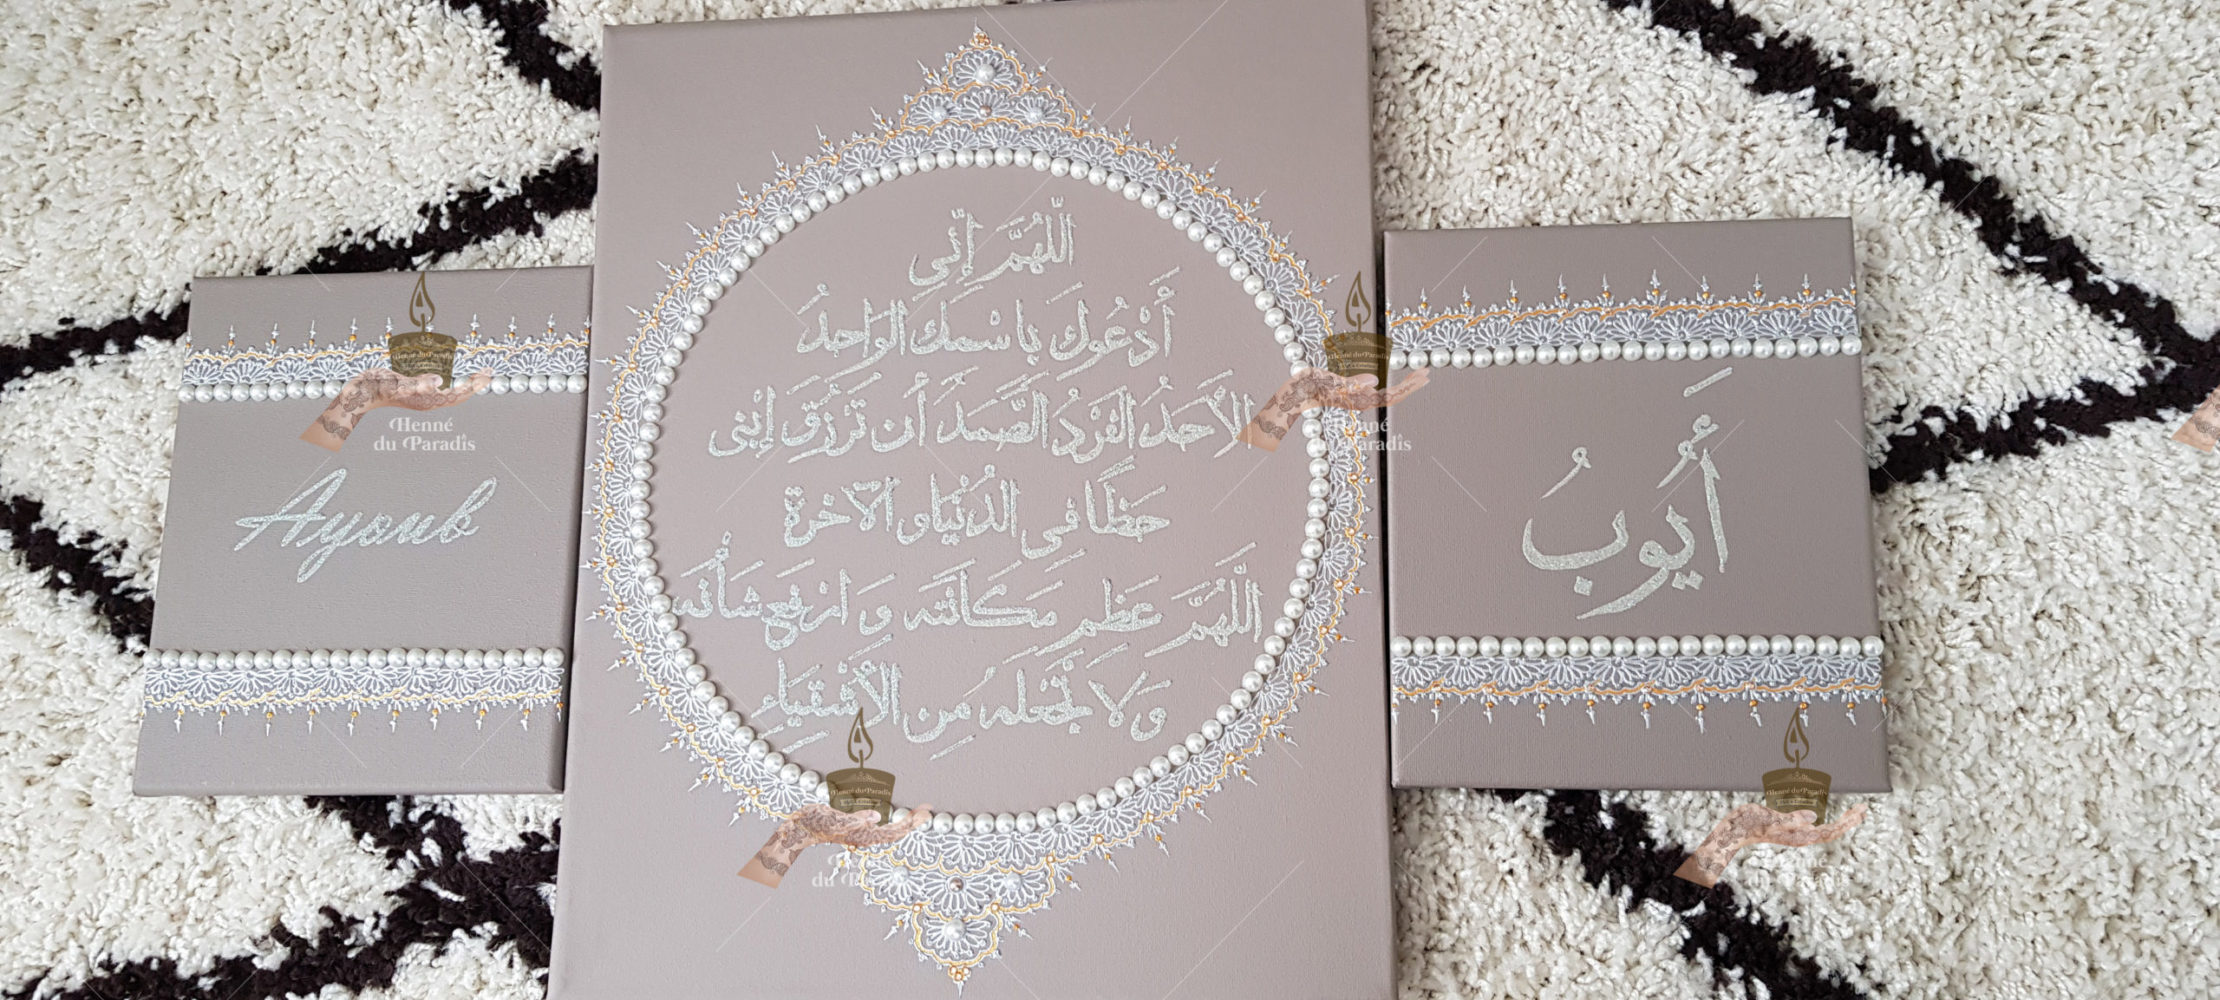 Ayoub
اللَّهُمَّ إِنِّي
أَدْعُوكَ بِاسْمِكَ الوَاحِدُ
الأَحَدُ الفَرْدُ الصَّمَدُ أَن تَرْزُقَ إِبْنِى
حَظًا فِي الدُنْيَا و الآخرة
اللَّهُمَّ عَظِم مَكَانَتَه وَ ارْفَع شَأْنَه
وَ لَا تَجْعَلْهُ مِنَ الأَشْقِيَاءِ
أَيُوبُ
Henné
du Paradis
Henné
du Paradis